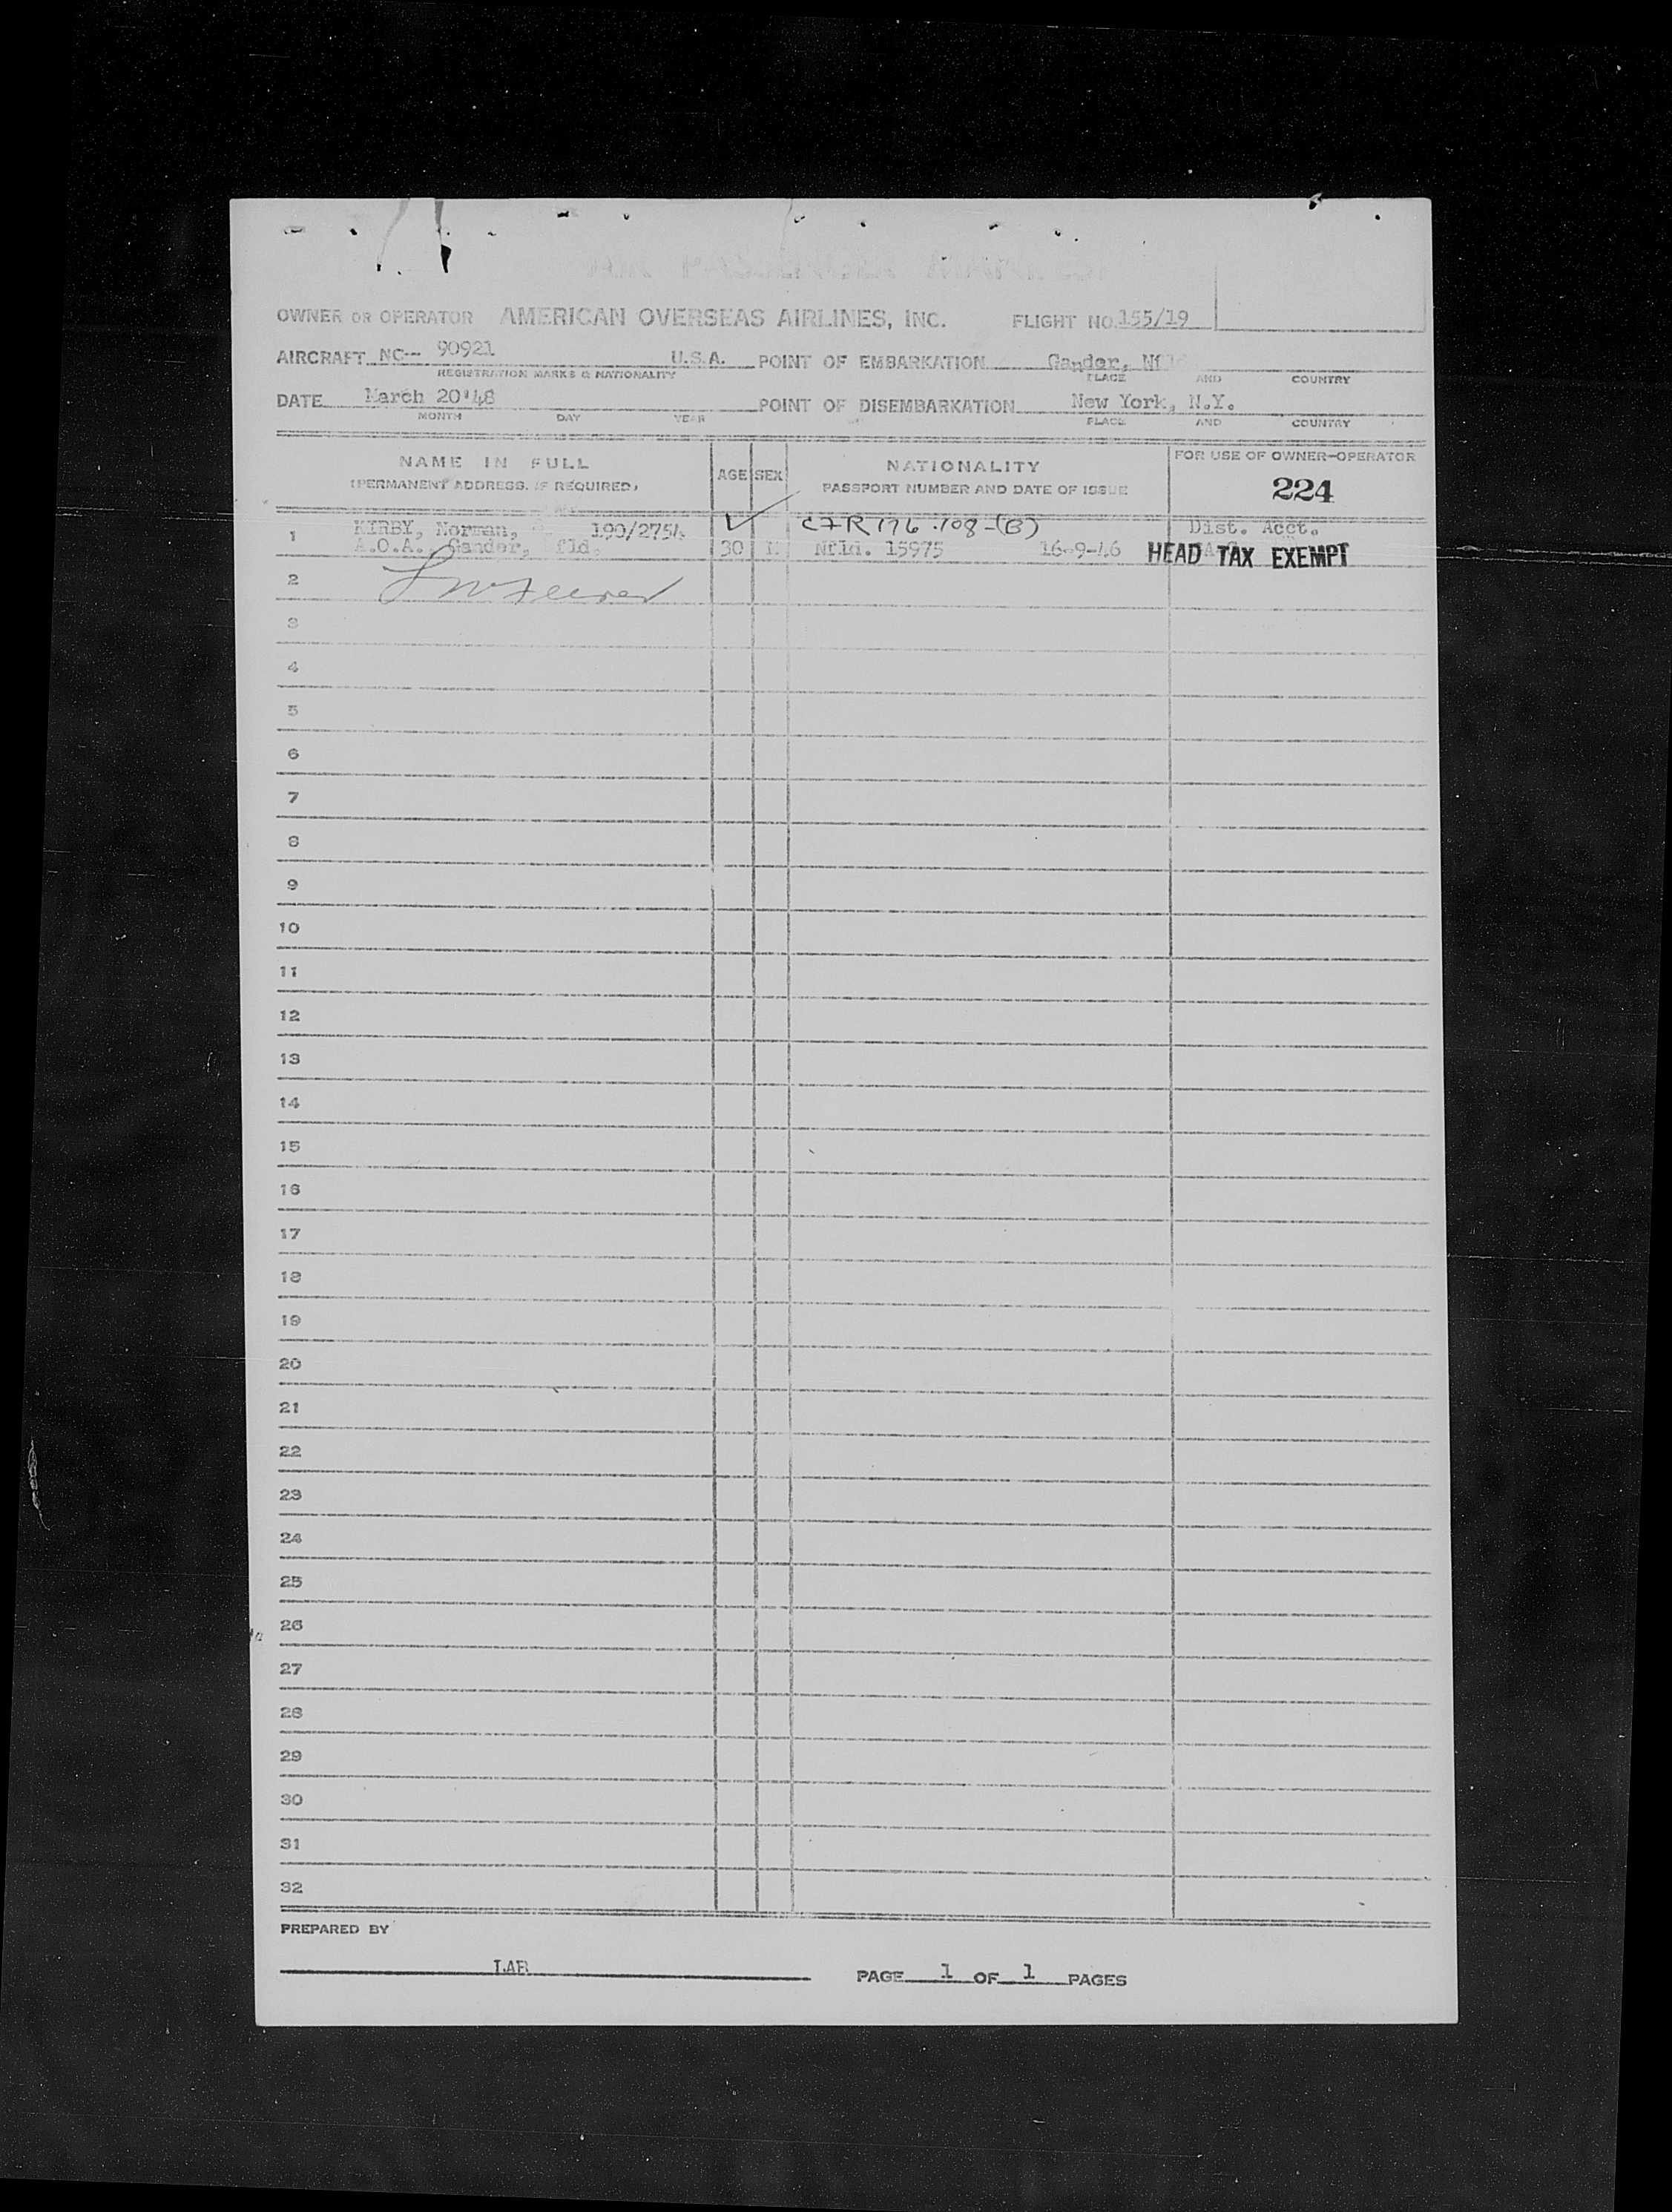 OWNER OR OPERATOR AMERICAN OVERSEAS AIRLINES, INC. FLIGHT NO. 155/19
AIRCRAFT NC-- 90921 U.S.A. POINT OF EMBARKATION Gander, Nf
REGISTRATION MARKS & NATIONALITY PLACE AND COUNTRY
DATE March 20'48 POINT OF DISEMBARKATION New York, N.Y.
MONTH DAY YEAR PLACE AND COUNTRY
NAME IN FULL
(PERMANENT ADDRESS, IF REQUIRED)
AGE SEX
NATIONALITY
PASSPORT NUMBER AND DATE OF ISSUE
FOR USE OF OWNER-OPERATOR
224
1 KIRBY, Norman, 190/2754 CFR 176.108-(B) Dist. Acct.
A.O.A., Gander, fld. 30 M Nfld. 15975 16-9-46 HEAD TAX EXEMPT
2
3
4
5
6
7
8
9
10
11
12
13
14
15
16
17
18
19
20
21
22
23
24
25
26
27
28
29
30
31
32
PREPARED BY
LAB PAGE 1 OF 1 PAGES